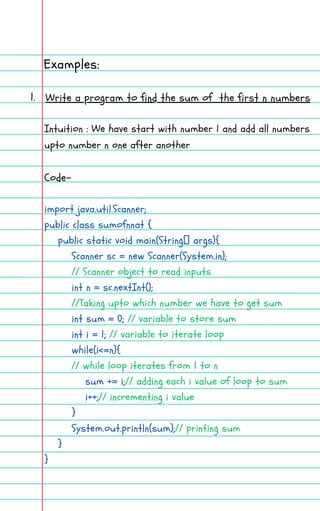 Examples:
1. Write a program to find the sum of the first n numbers
Intuition : We have start with number 1 and add all numbers
upto number n one after another
Code-
import java.util.Scanner;
public class sumofnnat {
public static void main(String[] args){
Scanner sc = new Scanner(System.in);
// Scanner object to read inputs
int n = sc.nextInt();
//Taking upto which number we have to get sum
int sum = 0; // variable to store sum
int i = 1; // variable to iterate loop
while(i<=n){
// while loop iterates from 1 to n
sum += i;// adding each i value of loop to sum
i++;// incrementing i value
}
System.out.println(sum);// printing sum
}
}